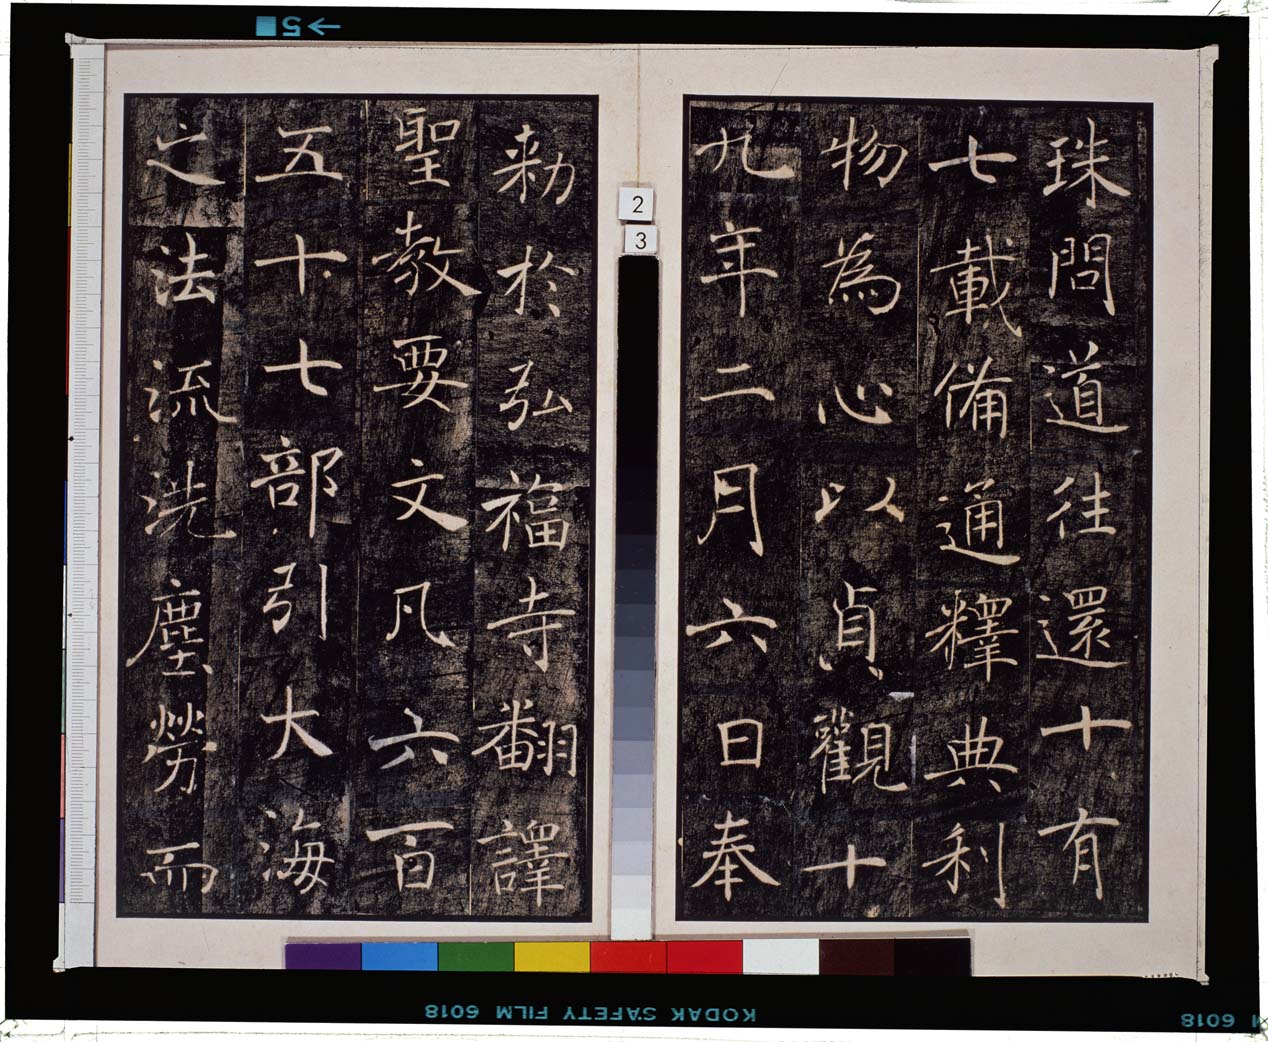 珠問道往還十有
七載備通釋典利
物為心以貞觀十
九年二月六日奉
勑於弘福寺翻譯
聖教要文凡六百
五十七部引大海
之法流洗塵勞而
2
3
5
KODAK SAFETY FILM 6018
M 6018